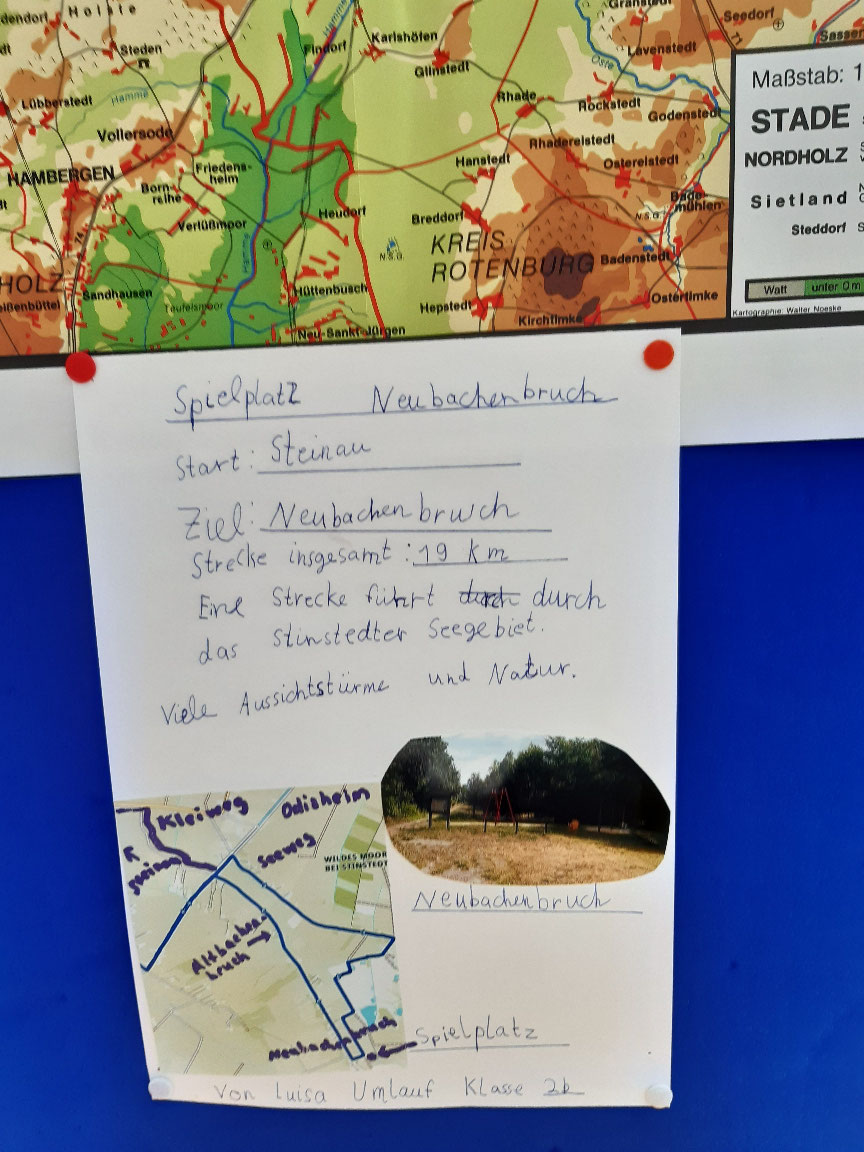 Holste
Granstedt
Seedorf
Steden
Hamme
Findorf
Karlshöfen
Glinstedt
Lavenstedt
71
Sassen
Oste
Lübberstedt
Hamme
Rhade
Rockstedt
Godenstedt
Vollersode
Rhadereistedt
HAMBERGEN
Friedens-
heim
Hanstedt
Ostereistedt
Born-
reihe
Bade-
mühlen
Verlüßmoor
Heudorf
Breddorf
N.S.G.
74
Hamme
N.S.G.
KREIS
ROTENBURG
Badenstedt
HOLZ
Sandhausen
Teufelsmoor
Hüttenbusch
Hepstedt
Ostertimke
Kirchtimke
Neu-Sankt-Jürgen
Maßstab: 1
STADE
NORDHOLZ
Sietland
Steddorf
Watt
unter 0 m
Kartographie: Walter Noeske
Spielplatz Neubachenbruch
Start: Steinau
Ziel: Neubachenbruch
Strecke insgesamt: 19 km
Eine Strecke führt durch durch
das Stinstedter Seegebiet.
Viele Aussichtstürme und Natur.
Kleiweg
Odisheim
Seeweg
WILDES MOOR
BEI STINSTEDT
Altbachen-
bruch
Neubachenbruch
Neubachenbruch
Spielplatz
Von Luisa Umlauf Klasse 2b